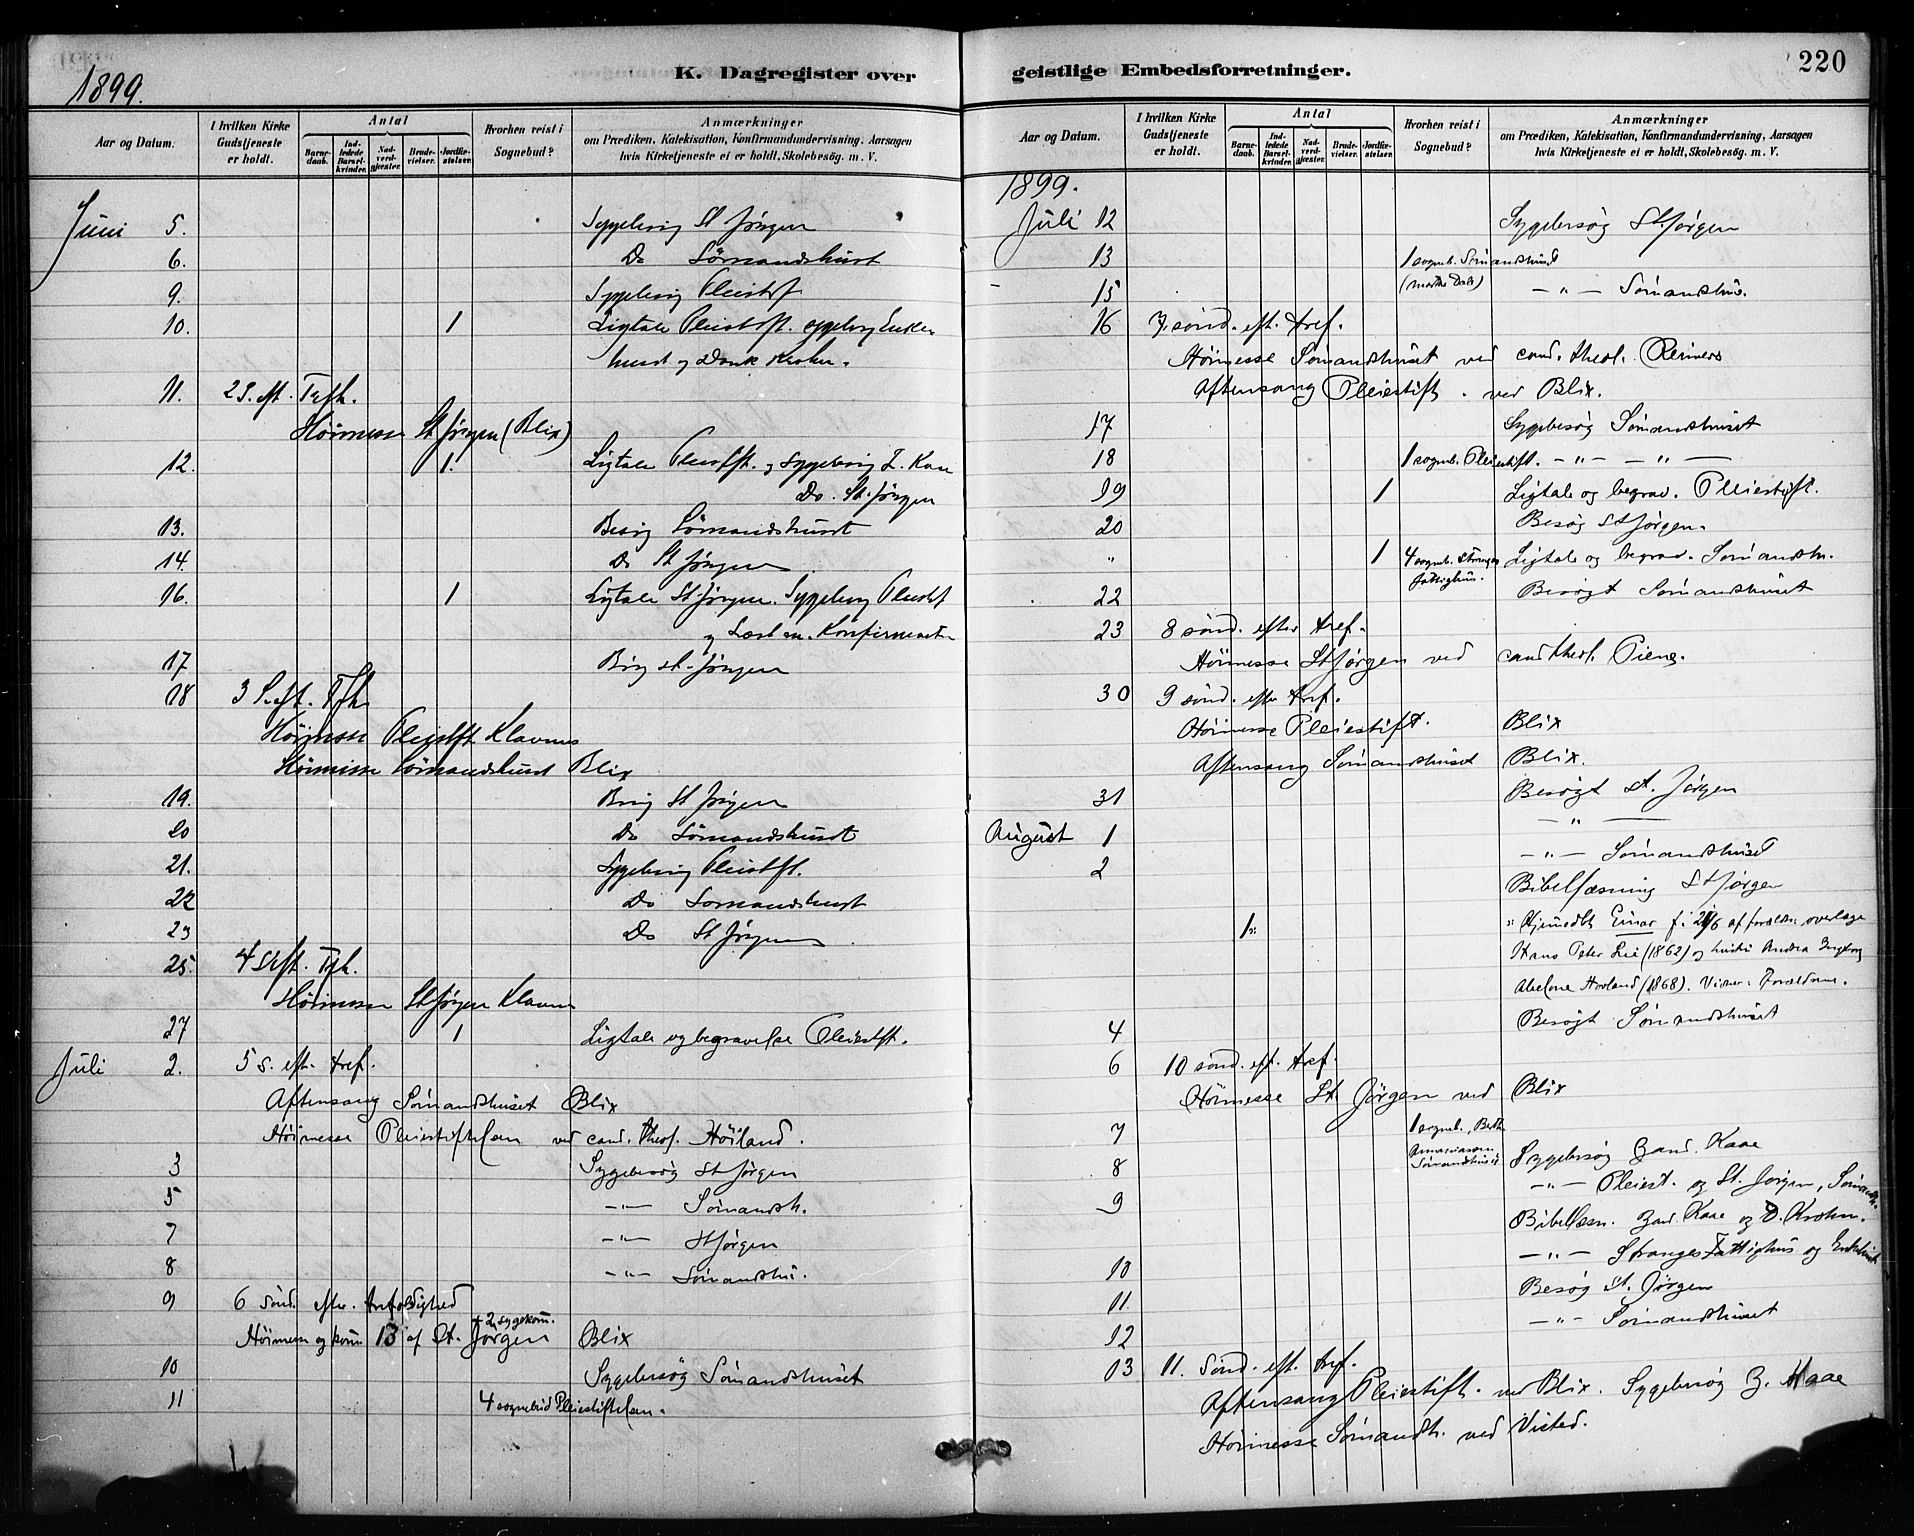 1899.
K. Dagregister over
Aar og Datum.
I hvilken Kirke Gudstjeneste er holdt.
Antal
Barnedaab.
Indledede Barselkvinder.
Nadverdgjæster.
Brudevielser.
Jordfæstelser.
Hvorhen reist i Sognebud?
Anmærkninger
om Prædiken, Katekisation, Konfirmandundervisning, Aarsagen
hvis Kirketjeneste ei er holdt, Skolebesøg. m. V.
Juni 5. Sygebesøg St Jørgen
6. Do Sømandshuset
9. Sygebesøg Pleiestift
10. 1 Ligtale Pleiestift. sygebesøg Enke
huset og Dank Krohn.
11. 2 S. eft. Trfh.
Høimesse St Jørgen (Blix)
12. 1. Ligtale Pleiestft. og Sygebesøg Z. Kaae
Do. St. Jørgen
13. Besøg Sømandshuset
14. Do St Jørgen
16. 1 Ligtale St Jørgen. Sygebesøg Pleiestift
og Læst m. Konfirmanter
17 Besøg St. Jørgen
18 3 S. eft. Tfh.
Høimesse Pleistft Klavnes
Høimesse Sømandshuset Blix
19. Besøg St Jørgen
20 Do Sømandshuset
21. Sygebesøg Pleiestft.
22 Do Sømandshuset
23 Do St Jørgen
25. 4 S eft. Tfh.
Høimesse St Jørgen Klavnes
27 1 Ligtale og begravelse Pleiestft.
Juli 2. 5 s. eft. tref.
Aftensang Sømandshuset Blix
Høimesse Pleiestiftelsen ved cand. theol. Høiland.
3 Sygebesøg St Jørgen
5 -"- Sømandsh.
7 -"- St Jørgen
8 -"- Sømandshu.
9 6 Sønd. efter. trefoldighed
+ 2 sygekom.
Høimesse og kom 13 af St. Jørgen Blix
10 Sygebesøg Sømandshuset
11 4 sognebud Pleiestiftelsen.
geistlige Embedsforretninger.
220
Aar og Datum.
I hvilken Kirke Gudstjeneste er holdt.
Antal
Barnedaab.
Indledede Barselkvinder.
Nadverdgjæster.
Brudevielser.
Jordfæstelser.
Hvorhen reist i Sognebud?
Anmærkninger
om Prædiken, Katekisation, Konfirmandundervisning, Aarsagen
hvis Kirketjeneste ei er holdt, Skolebesøg. m. V.
1899.
Juli 12 Sygebesøg St. Jørgen
13 1 sogneb. Sømandshuset
(Marthe Dale)
15 -"- Sømandshus.
16 7. sønd. eft. tref.
Høimesse Sømandshuset ved cand. theol. Reimers
Aftensang Pleiestift. ved Blix.
17 Sygebesøg Sømandshuset
18 1 sogneb. Pleiestift. -"- -"-
19 1 Ligtale og begrav. Pleiestift.
20 Besøg St Jørgen.
" 1 4 sogneb. Stranges Fattighus. Ligtale og begrav. Sømandsh.
22 Besøgt Sømandshuset
23 8 sønd. efter tref.
Høimesse St Jørgen ved cand theol. Piene.
30 9 sønd. efter tref.
Høimesse Pleiestift. Blix
Aftensang Sømandshuset Blix.
31 Besøgt St. Jørgen
August 1 -"-
2 -"- Sømandshuset
Bibellæsning St Jørgen
1" " Hjemmedøbt Einar f. af forældre: overlæge
Hans Peter Lie (1862) og hustru Andrea Ingeborg
Abelone Hovland (1868). Vidner: Forældrene.
4 Besøgt Sømandshuset
6 10 sønd. eft. tref.
Høimesse St. Jørgen ved Blix
7 1 sogneb. Berthe
Sømandshuset Sygebesøg Zand. Kaae
8 -"- Pleiest. og St. Jørgen, Sømandh.
9 Bibellæsn. Zand. Kaae og D. Krohn.
-"- Stranges Fattighus og Enkehuset
10 Besøg St. Jørgen
11. -"- Sømandshuset
12
13 11. Sønd. eft. tref.
Aftensang Pleiestift. ved Blix. Sygebesøg Z. Kaae
Høimesse Sømandh. ved Visted.